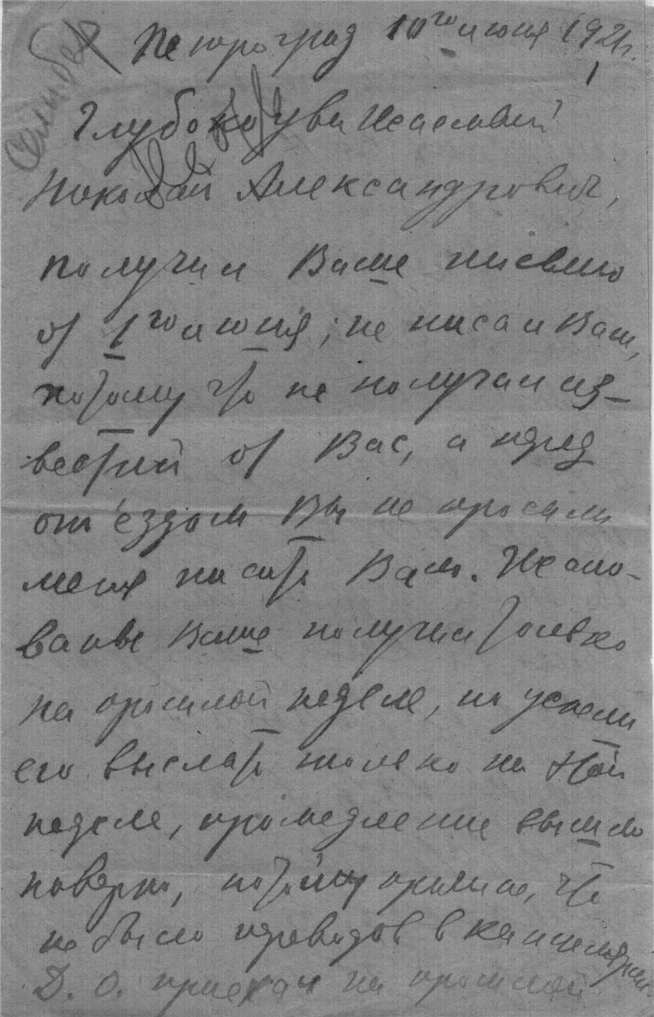 Петроград 10го июня 1921г.
Глубокоуважаемый
Николай Александрович,
получил Ваше письмо
от 1го июня; не писал Вам,
потому что не получал из-
вестий от Вас, а перед
отъездом Вы не просили
меня писать Вам. Жало-
ванье Ваше получил только
на прошлой неделе, но успели
его выслать только на этой
неделе, промедление вышло
потому что
не было переводов в канцелярии.
Д. О. приехал на прошлой